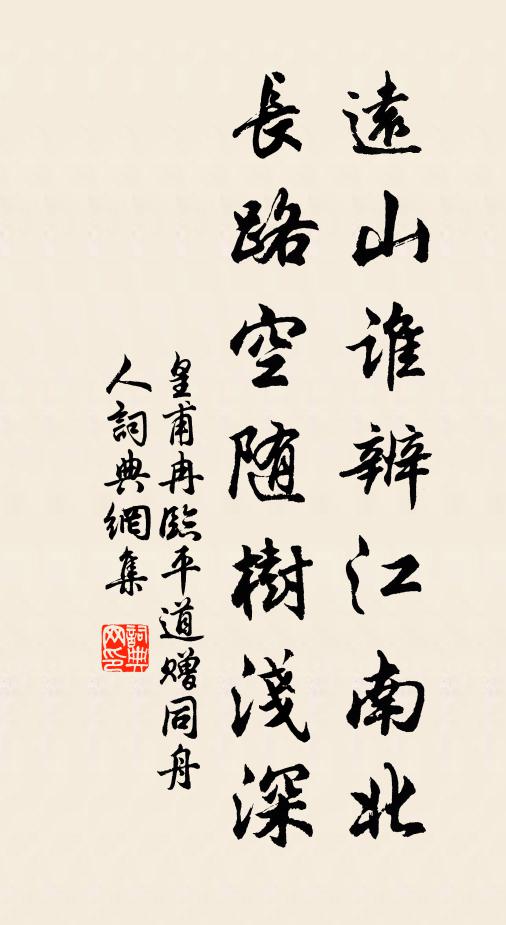 遠山誰辨江南北
長路空随樹淺深
皇甫冉臨平道贈同舟
人詞典網集
詞典
网印